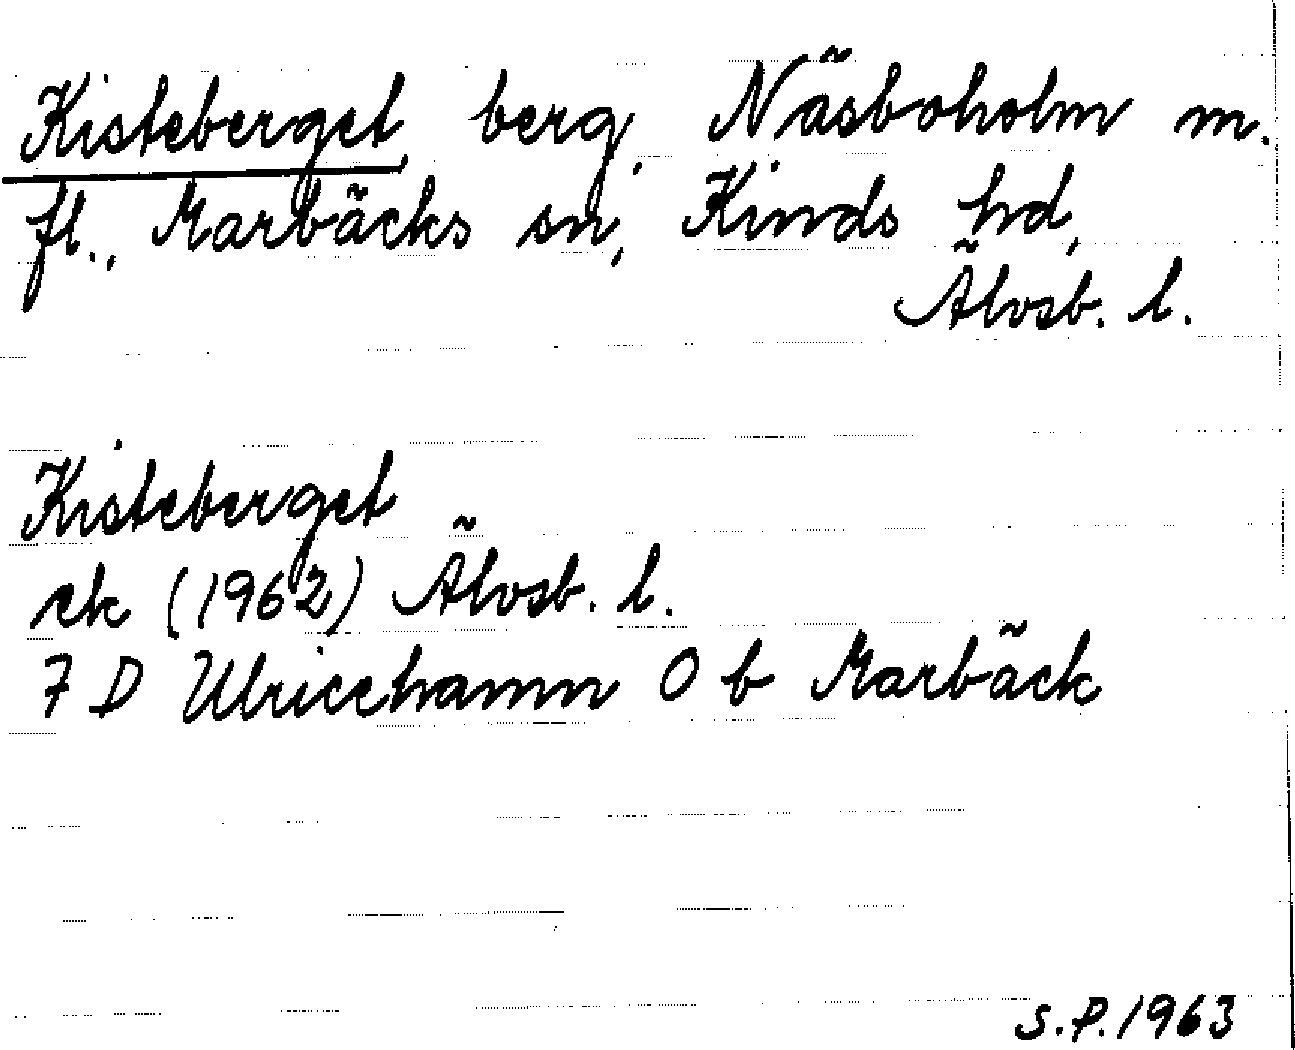 Kisteberget, berg, Näsboholm m.
fl., Marbäcks sn, Kinds hd,
Älvsb. l.
Kisteberget
ek (1962) Älvsb. l.
7 D Ulricehamn 0 b Marbäck
S.P. 1963